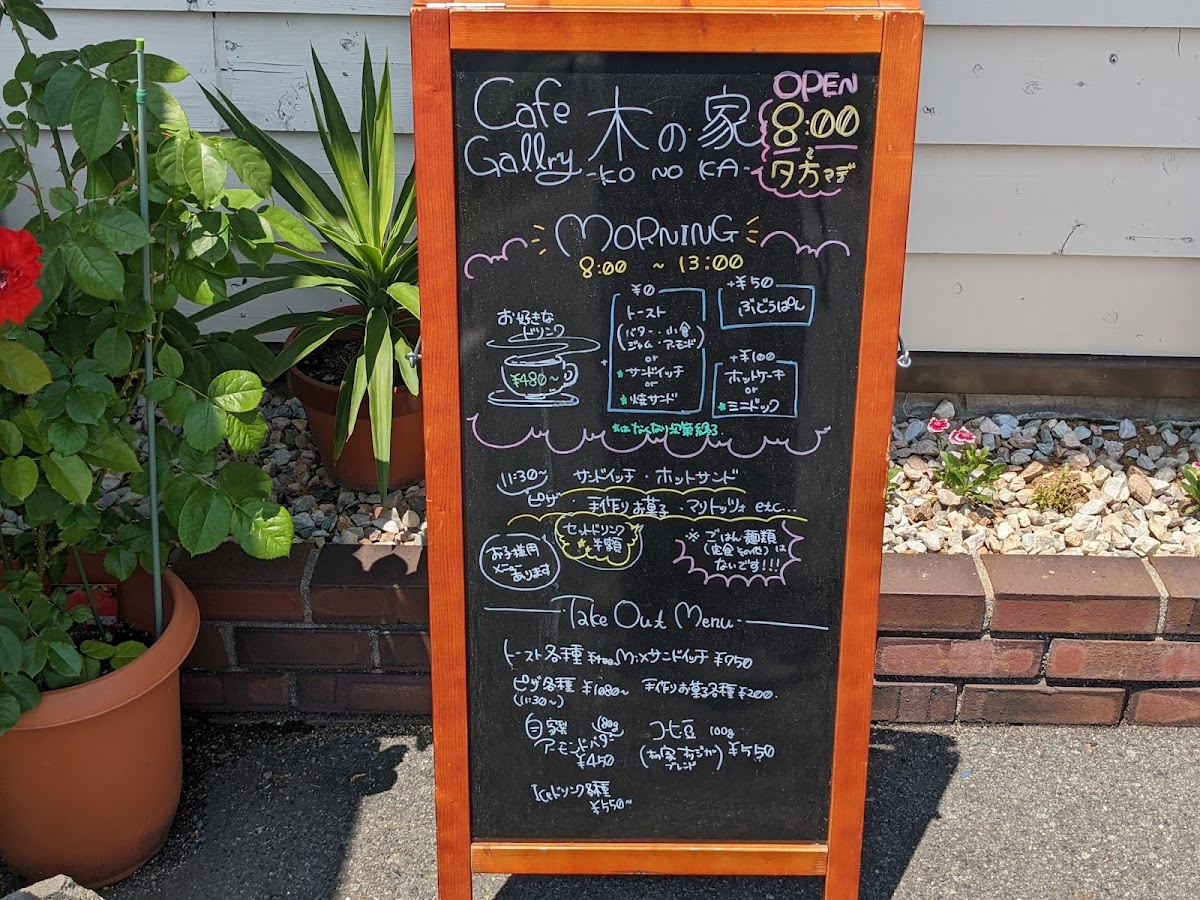 Cafe
Gallry
木の家
-KO NO KA-
OPEN
8:00
と
夕方マデ
MORNING
8:00 ~ 13:00
お好きな
ドリンク
¥480~
+
¥0
トースト
(バター・小倉
ジャム・アーモンド)
or
*サンドイッチ
or
*焼サンド
+¥50
ぶどうぱん
+¥100
ホットケーキ
or
*ミニドック
*はなくなり次第終了
11:30~
サンドイッチ・ホットサンド
ピザ
手作りお菓子・マリトッツォ etc...
セットドリンク
半額
お子様用
メニュー
あります
※ごはん麺類
(定食その他)は
ないです!!!
Take Out Menu
トースト各種 Mixサンドイッチ ¥750
ピザ各種 ¥1080~ 手作りお菓子各種 ¥200.
(11:30~)
自家製 180g
アーモンドバター
¥450
コーヒー豆 100g
ブレンド
¥550
Iceドリンク各種
¥550~